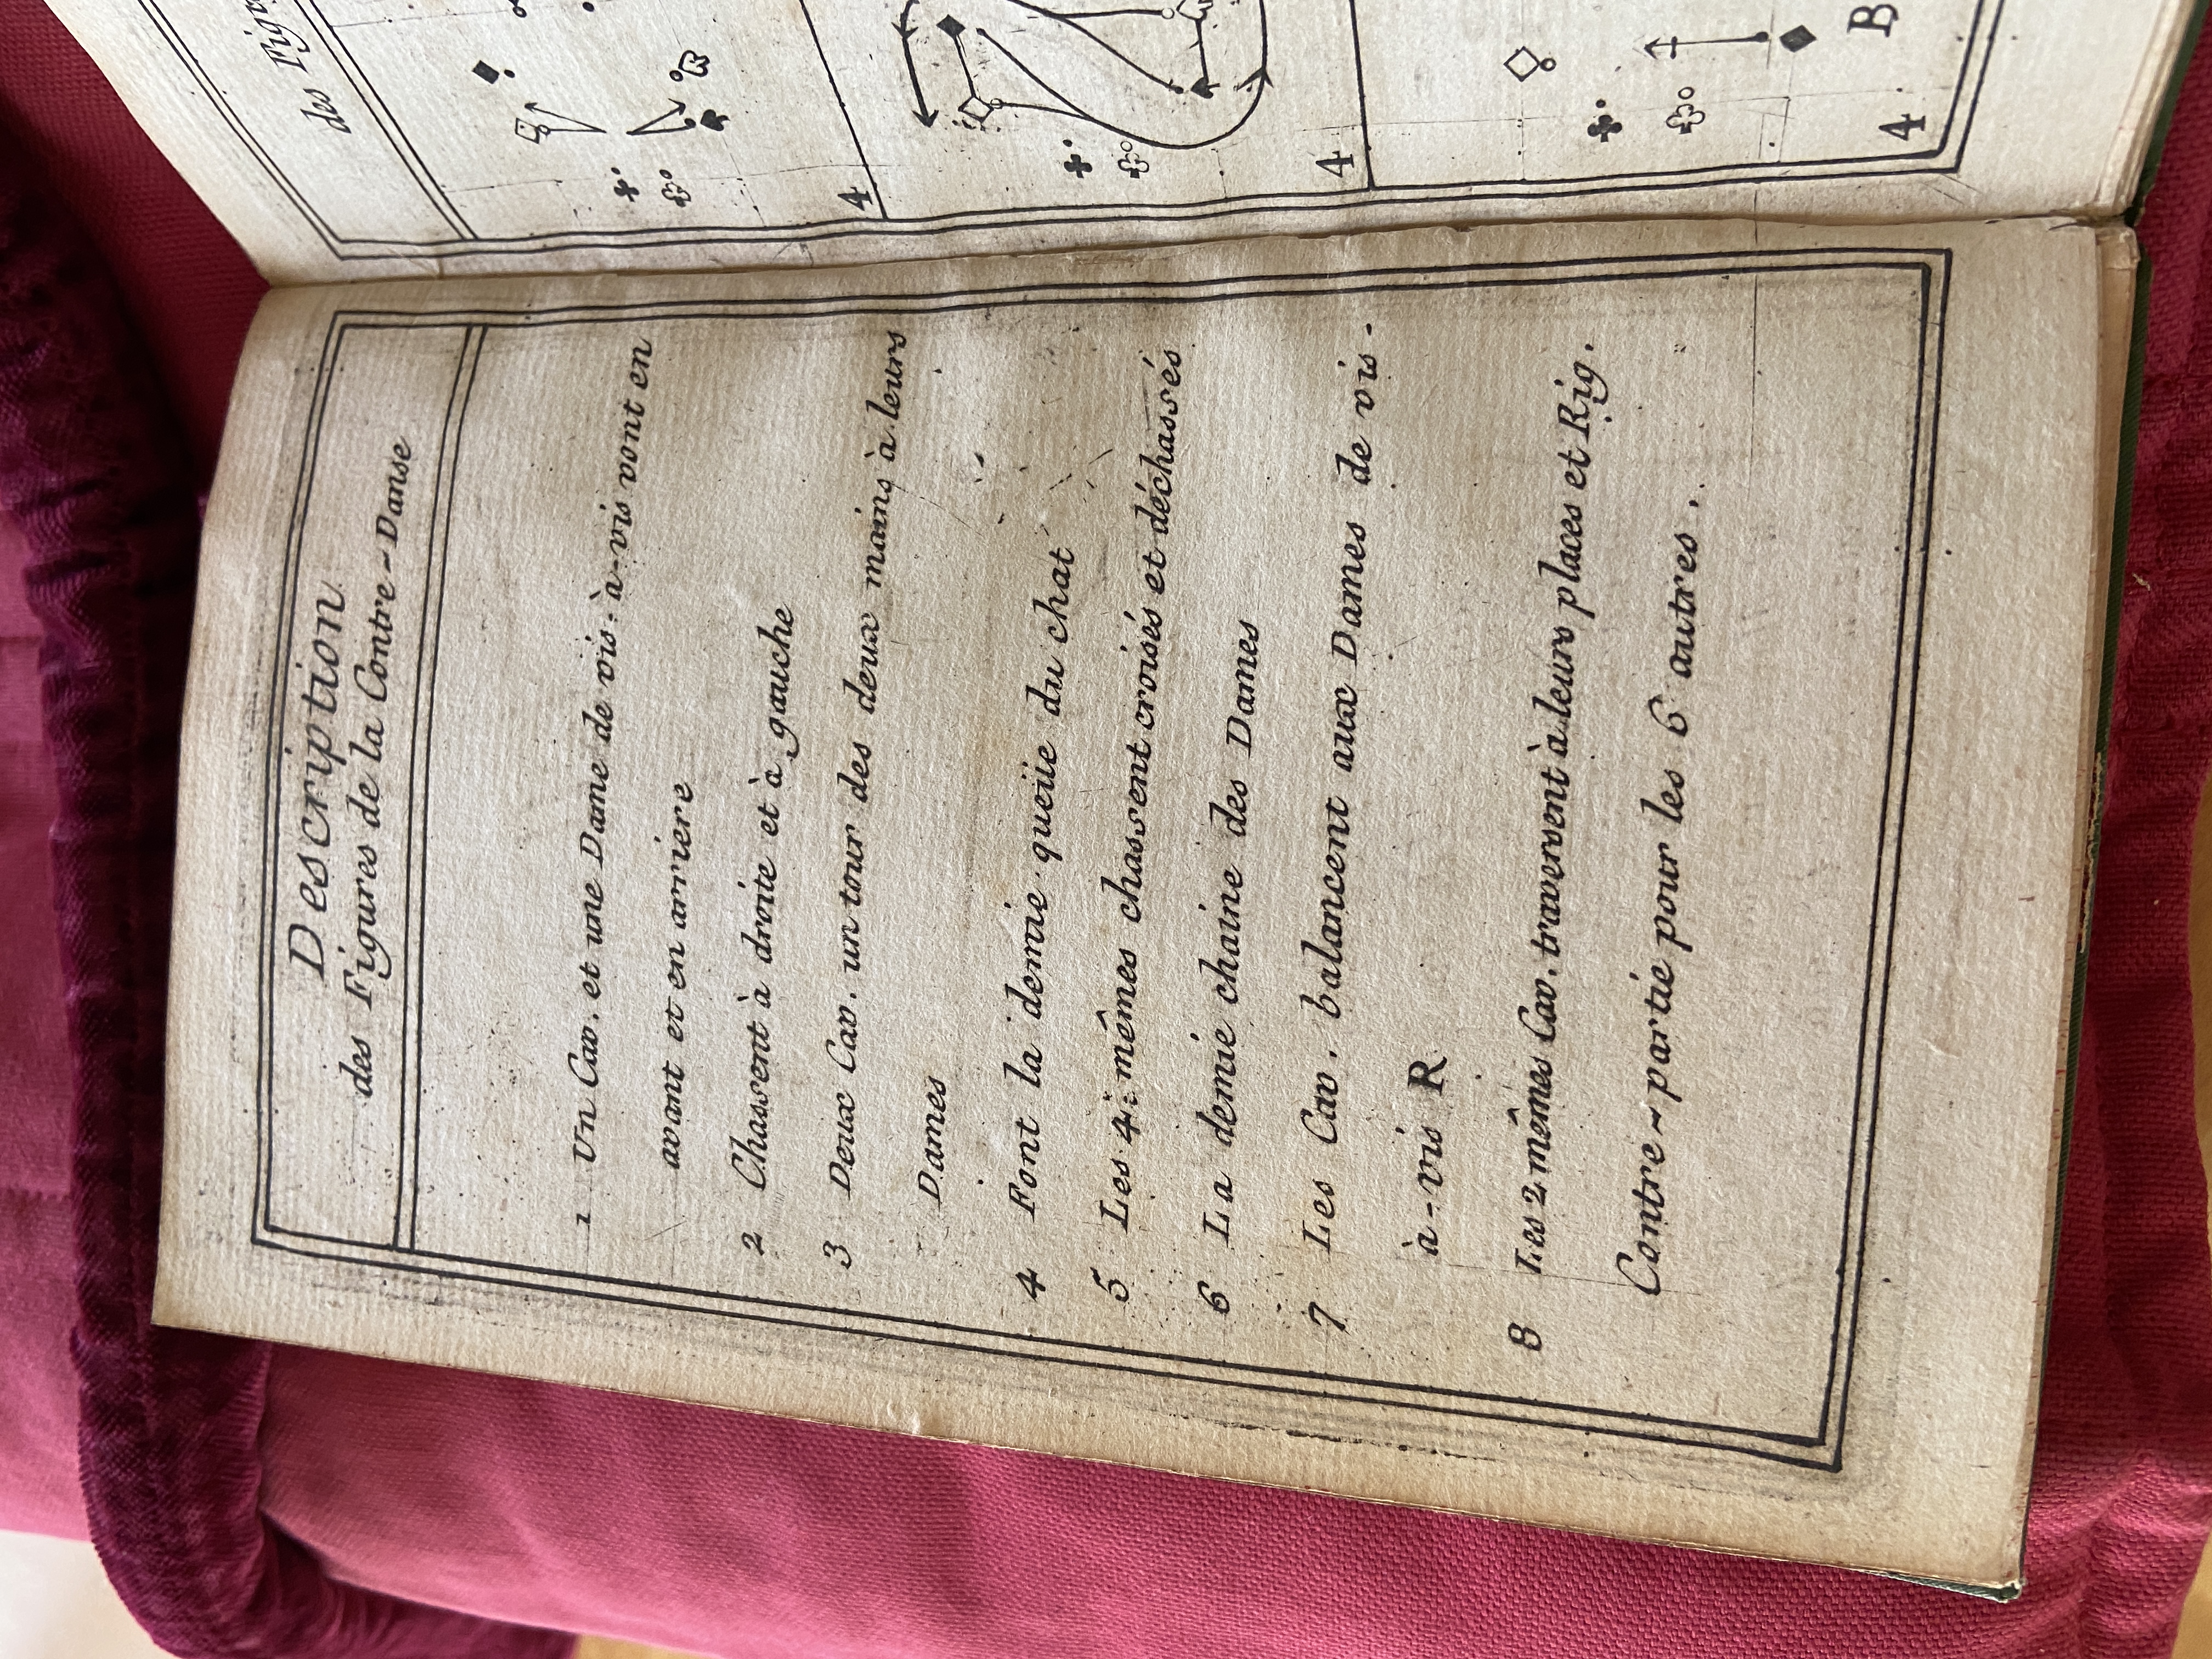 Description
des Figures de la Contre-Danse
1 Un Cav. et une Dame de vis-à-vis vont en
avant et en arriere
2 Chassent à droite et à gauche
3 Deux Cav. un tour des deux mains à leurs
Dames
4 Font la demie queüe du chat
5 Les 4 mêmes chassent croisés et déchassés
6 La demie chaine des Dames
7 Les Cav. balancent aux Dames de vis-
à-vis R
8 Les 2 mêmes Cav. traversent à leurs places et Rig.
Contre-partie pour les 6 autres.
des
4
4
4 B